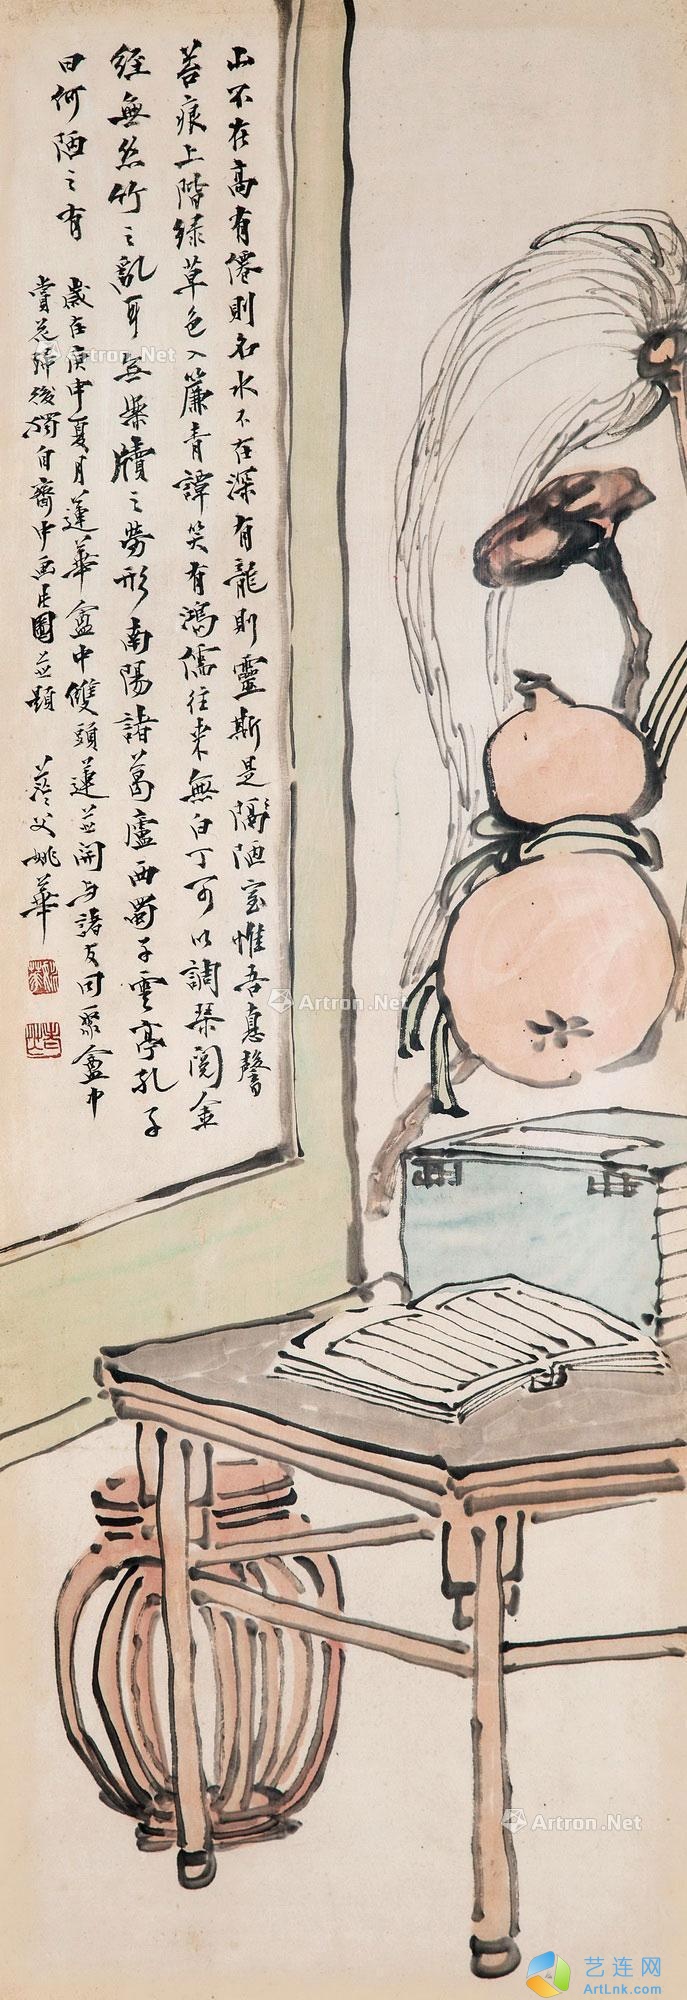 山不在高有僊則名水不在深有龍則靈斯是陋室惟吾惪馨
苔痕上階綠草色入簾青譚笑有鴻儒往來無白丁可以調琴閱金
經無絲竹之亂耳無案牘之勞形南陽諸葛廬西蜀子雲亭孔子
曰何陋之有
歲在庚申夏月蓮華盦中雙頭蓮並開与諸友同聚盦中
賞花歸後獨自齋中画此圖並題
茫父姚華
Artron.Net
Artron.Net
Artron.Net
Artron.Net
Artron.Net
艺连网
ArtLnk.com